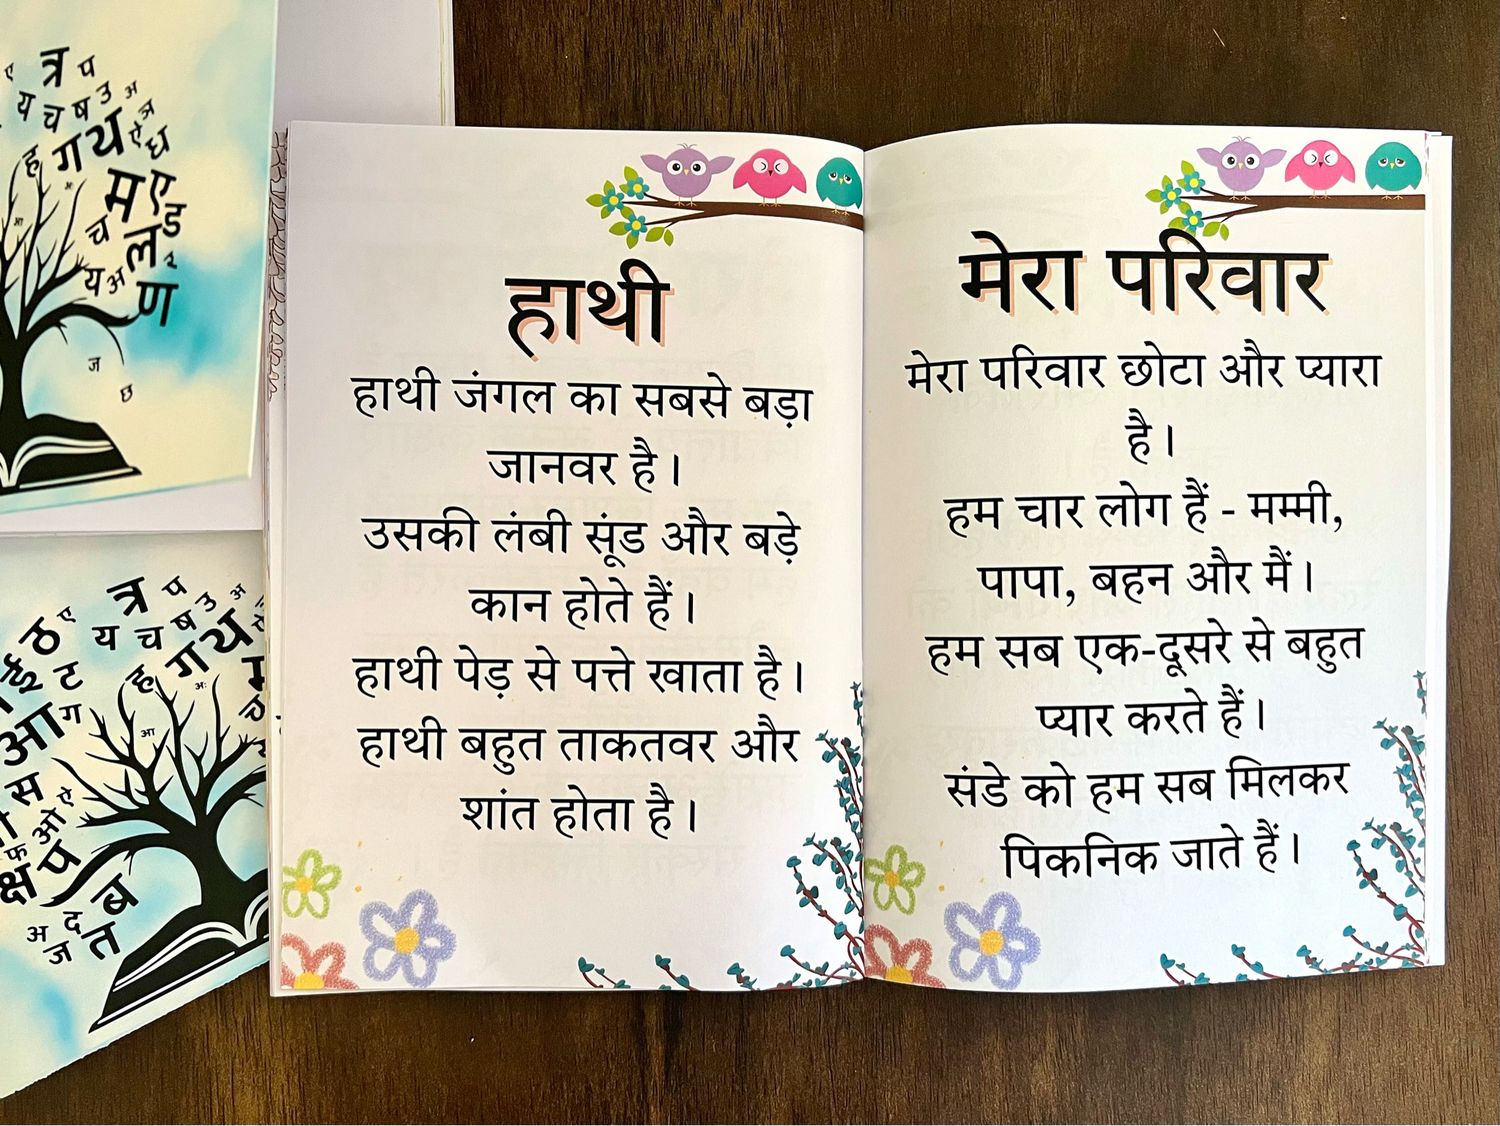 हाथी
हाथी जंगल का सबसे बड़ा
जानवर है।
उसकी लंबी सूंड और बड़े
कान होते हैं।
हाथी पेड़ से पत्ते खाता है।
हाथी बहुत ताकतवर और
शांत होता है।
मेरा परिवार
मेरा परिवार छोटा और प्यारा
है।
हम चार लोग हैं - मम्मी,
पापा, बहन और मैं।
हम सब एक-दूसरे से बहुत
प्यार करते हैं।
संडे को हम सब मिलकर
पिकनिक जाते हैं।